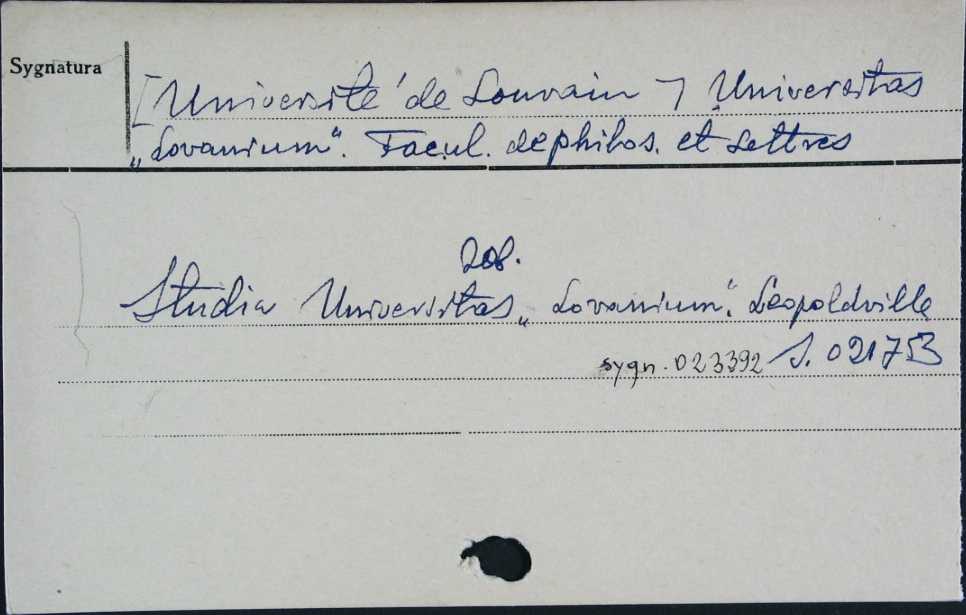 Sygnatura
[Université de Louvain] Universitas
„Lovanium“. Facul. de philos. et Lettres
zob.
Studia Universitas „Lovanium“. Leopoldville
sygn. 023392 S. 021753